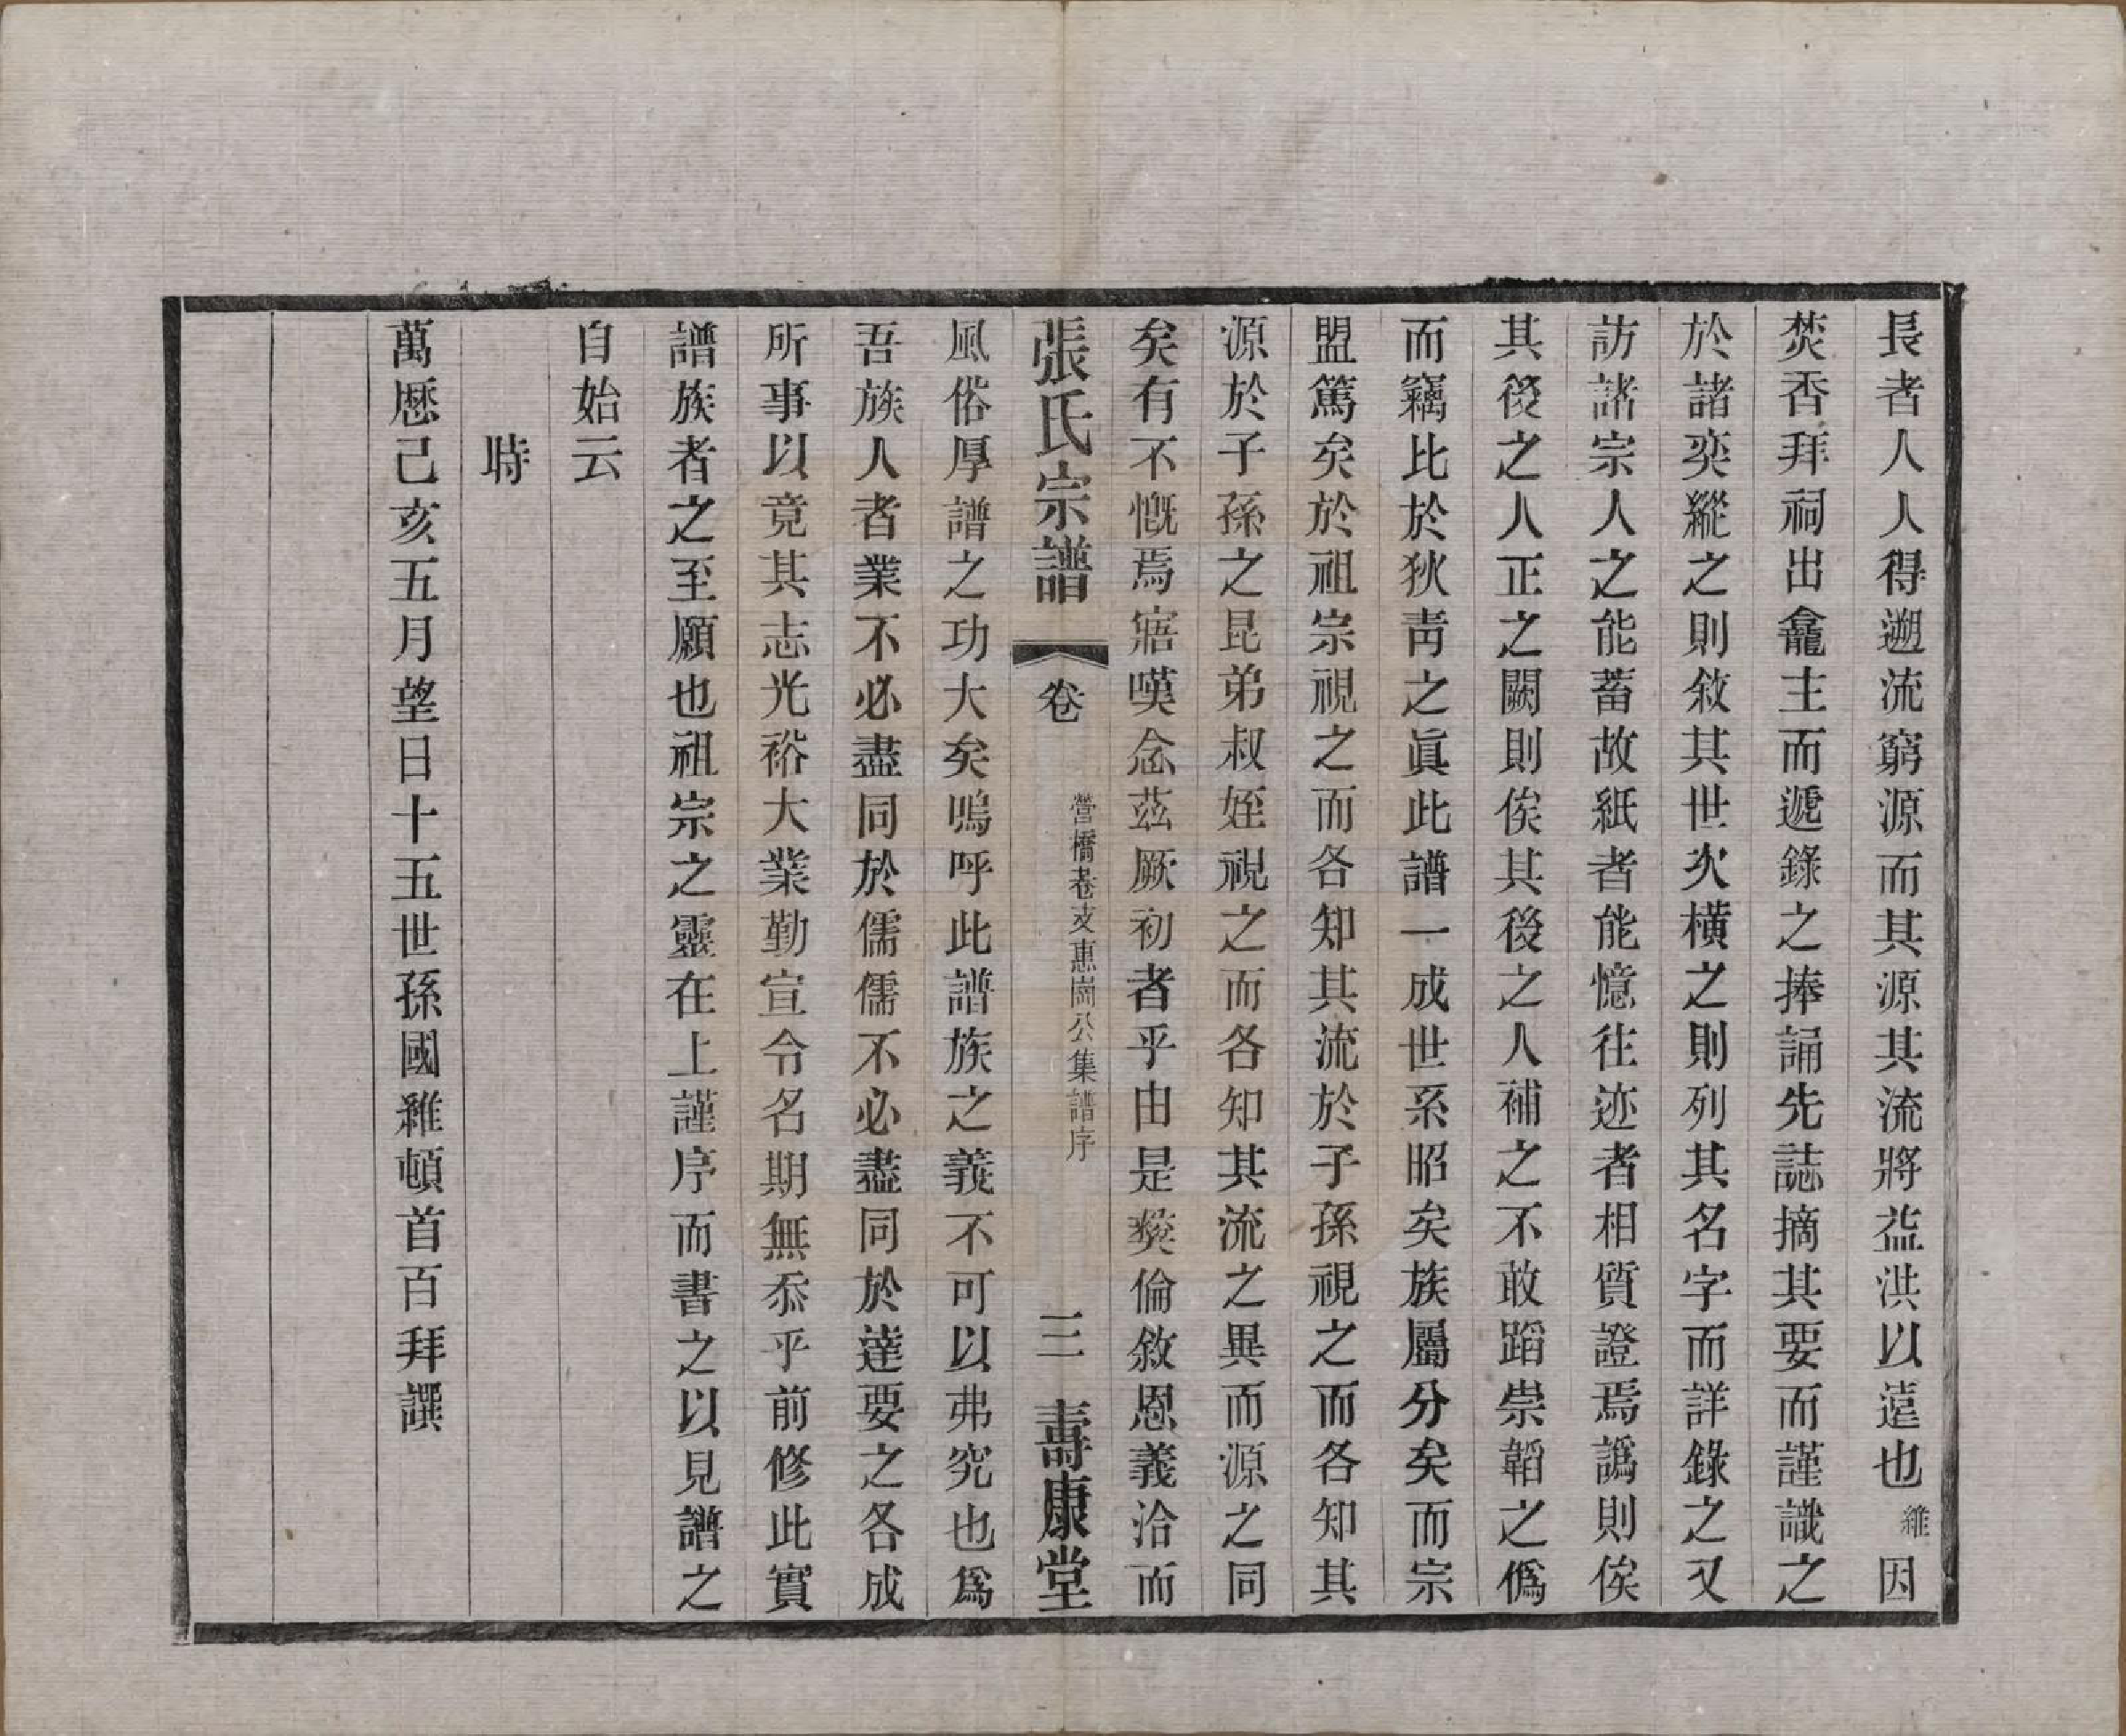 長者人人得遡流窮源而其源其流將益洪以遠也維因
焚香拜祠出龕主而遞錄之捧誦先誌摘其要而謹識之
於諸奕縱之則敘其世次橫之則列其名字而詳錄之又
訪諸宗人之能蓄故紙者能憶往迹者相質證焉譌則俟
其後之人正之闕則俟其後之人補之不敢蹈祟韜之僞
而竊比於狄靑之眞此譜一成世系昭矣族屬分矣而宗
盟篤矣於祖宗視之而各知其流於子孫視之而各知其
源於子孫之昆弟叔姪視之而各知其流之異而源之同
矣有不慨焉寤嘆念茲厥初者乎由是彝倫敘恩義洽而
張氏宗譜 卷 營橋巷支惠崗公集譜序 三 壽康堂
風俗厚譜之功大矣嗚呼此譜族之義不可以弗究也爲
吾族人者業不必盡同於儒儒不必盡同於達要之各成
所事以竟其志光裕大業勤宣令名期無忝乎前修此實
譜族者之至願也祖宗之靈在上謹序而書之以見譜之
自始云
時
萬歷己亥五月望日十五世孫國維頓首百拜譔